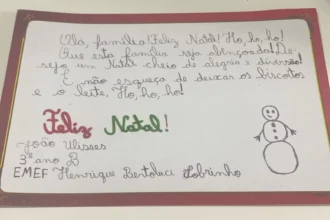 Olá, família! Feliz Natal! Ho, ho, ho!
Que esta família seja abençoada! De-
sejo um Natal cheio de alegria e diversão!
E não esqueça de deixar os biscoitos
e o leite, Ho, ho, ho!
Feliz Natal!
João Ulisses
3º ano B
EMEF Henrique Bertoluci Sobrinho